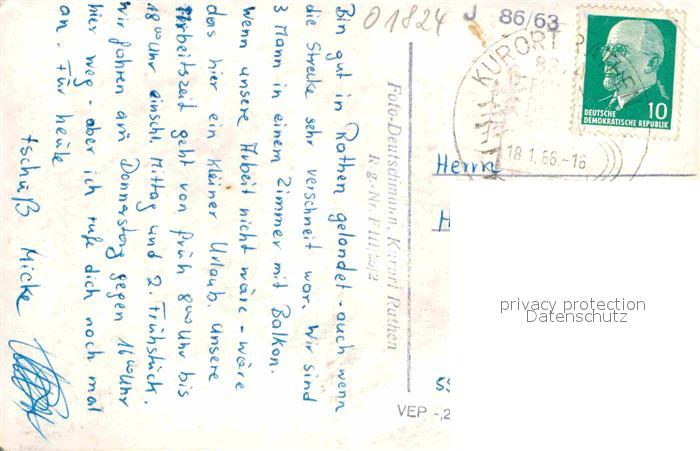 Bin gut in Rathen gelandet - auch wenn
die Strecke sehr verschneit war. Wir sind
3 Mann in einem Zimmer mit Balkon.
Wenn unsere Arbeit nicht wäre - wäre
das hier ein kleiner Urlaub. Unsere
Arbeitszeit geht von früh 8ºº Uhr bis
18ºº Uhr einschl. Mittag und 2. Frühstück.
Wir fahren am Donnerstag gegen 16ºº Uhr
hier weg - aber ich rufe dich noch mal
an. Für heute
tschüß Micke
01824
J 86/63
KURORT RATHEN
18.1.66-16
10
DEUTSCHE
DEMOKRATISCHE REPUBLIK
Foto-Deutschmann, Kurort Rathen
Herrn
H
VEP -,2
privacy protection
Datenschutz